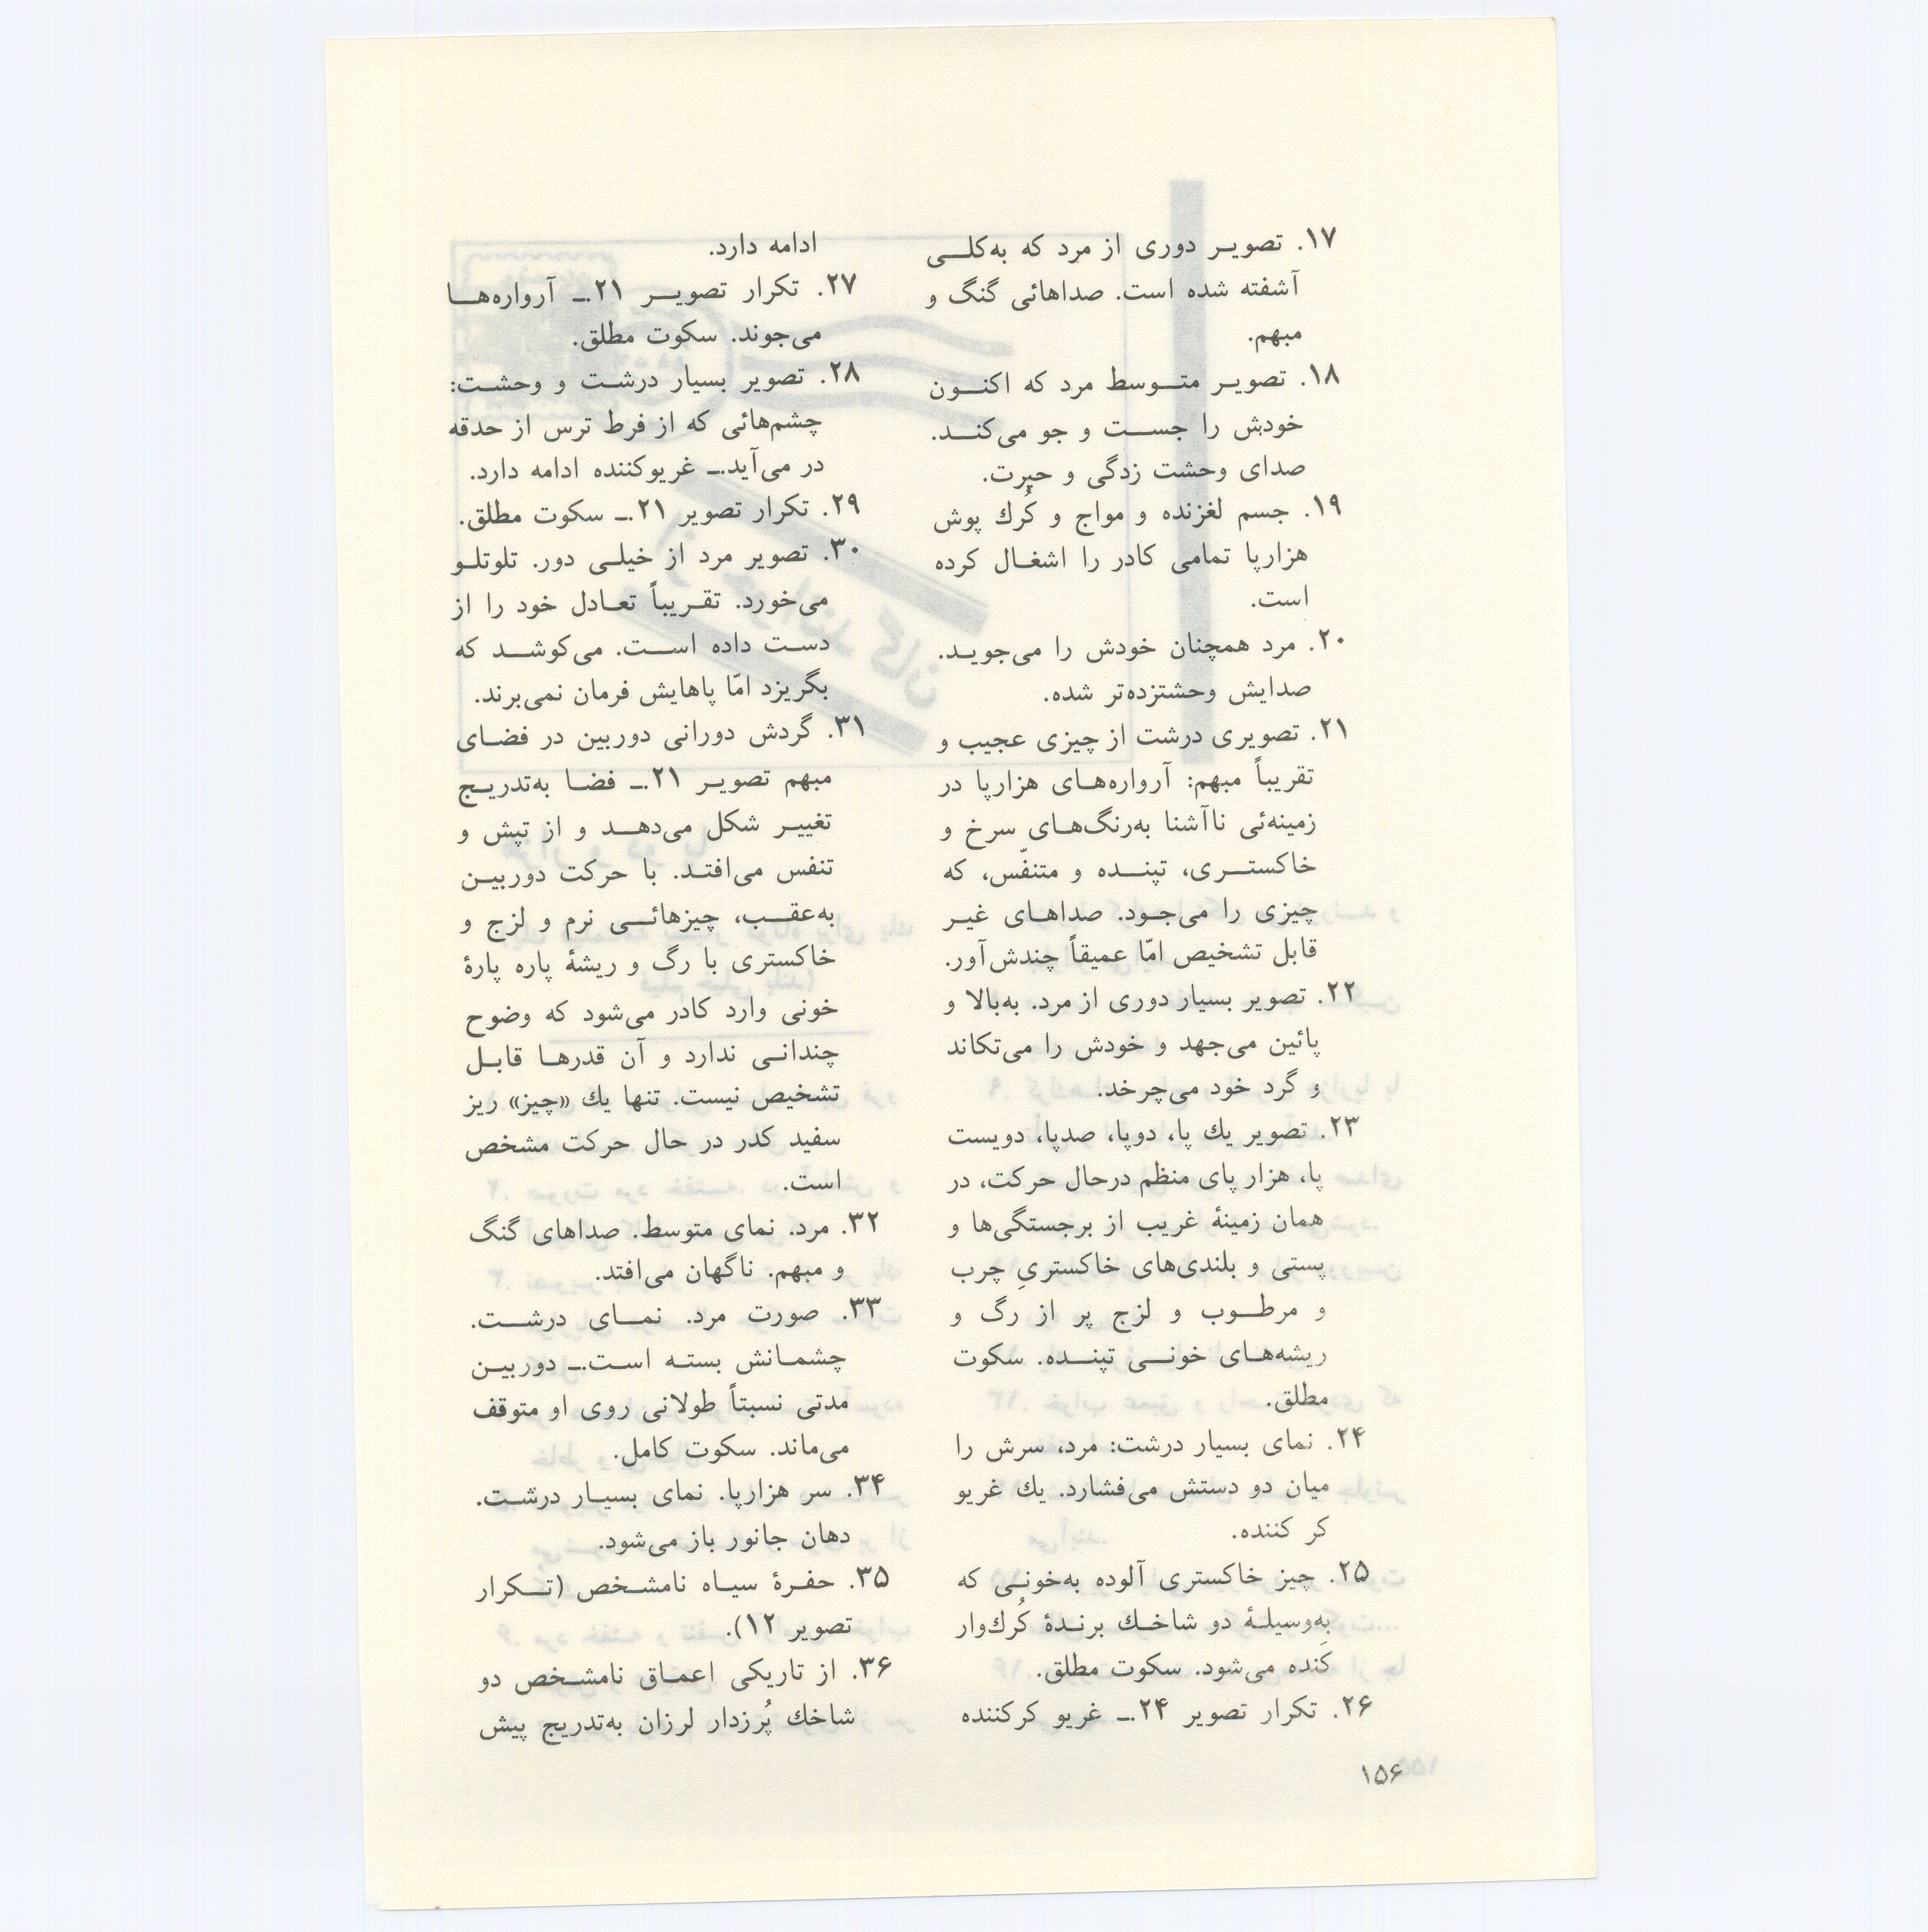 ۱۷. تصویر دوری از مرد که به‌کلی
آشفته شده است. صداهائی گنگ و
مبهم.
۱۸. تصویر متوسط مرد که اکنون
خودش را جست و جو می‌کند.
صدای وحشت زدگی و حیرت.
۱۹. جسم لغزنده و مواج و کُرك پوش
هزارپا تمامی کادر را اشغال کرده
است.
۲۰. مرد همچنان خودش را می‌جوید.
صدایش وحشتزده‌تر شده.
۲۱. تصویری درشت از چیزی عجیب و
تقریباً مبهم: آرواره‌های هزارپا در
زمینه‌ئی ناآشنا به‌رنگ‌های سرخ و
خاکستری، تپنده و متنفّس، که
چیزی را می‌جود. صداهای غیر
قابل تشخیص امّا عمیقاً چندش‌آور.
۲۲. تصویر بسیار دوری از مرد. به‌بالا و
پائین می‌جهد و خودش را می‌تکاند
و گرد خود می‌چرخد.
۲۳. تصویر یك پا، دوپا، صدپا، دویست
پا، هزار پای منظم درحال حرکت، در
همان زمینهٔ غریب از برجستگی‌ها و
پستی و بلندی‌های خاکستریِ چرب
و مرطوب و لزج پر از رگ و
ریشه‌های خونی تپنده. سکوت
مطلق.
۲۴. نمای بسیار درشت: مرد، سرش را
میان دو دستش می‌فشارد. یك غریو
کر کننده.
۲۵. چیز خاکستری آلوده به‌خونی که
به‌وسیلهٔ دو شاخك برندهٔ کُرك‌وار
کَنده می‌شود. سکوت مطلق.
۲۶. تکرار تصویر ۲۴ــ غریو کرکننده
ادامه دارد.
۲۷. تکرار تصویر ۲۱ــ آرواره‌ها
می‌جوند. سکوت مطلق.
۲۸. تصویر بسیار درشت و وحشت:
چشم‌هائی که از فرط ترس از حدقه
در می‌آید.ــ غریوکننده ادامه دارد.
۲۹. تکرار تصویر ۲۱ــ سکوت مطلق.
۳۰. تصویر مرد از خیلی دور. تلوتلو
می‌خورد. تقریباً تعادل خود را از
دست داده است. می‌کوشد که
بگریزد امّا پاهایش فرمان نمی‌برند.
۳۱. گردش دورانی دوربین در فضای
مبهم تصویر ۲۱ــ فضا به‌تدریج
تغییر شکل می‌دهد و از تپش و
تنفس می‌افتد. با حرکت دوربین
به‌عقب، چیزهائی نرم و لزج و
خاکستری با رگ و ریشهٔ پاره پارهٔ
خونی وارد کادر می‌شود که وضوح
چندانی ندارد و آن قدرها قابل
تشخیص نیست. تنها یك «چیز» ریز
سفید کدر در حال حرکت مشخص
است.
۳۲. مرد. نمای متوسط. صداهای گنگ
و مبهم. ناگهان می‌افتد.
۳۳. صورت مرد. نمای درشت.
چشمانش بسته است.ــ دوربین
مدتی نسبتاً طولانی روی او متوقف
می‌ماند. سکوت کامل.
۳۴. سر هزارپا. نمای بسیار درشت.
دهان جانور باز می‌شود.
۳۵. حفرهٔ سیاه نامشخص (تکرار
تصویر ۱۲).
۳۶. از تاریکی اعماق نامشخص دو
شاخك پُرزدار لرزان به‌تدریج پیش
۱۵۶